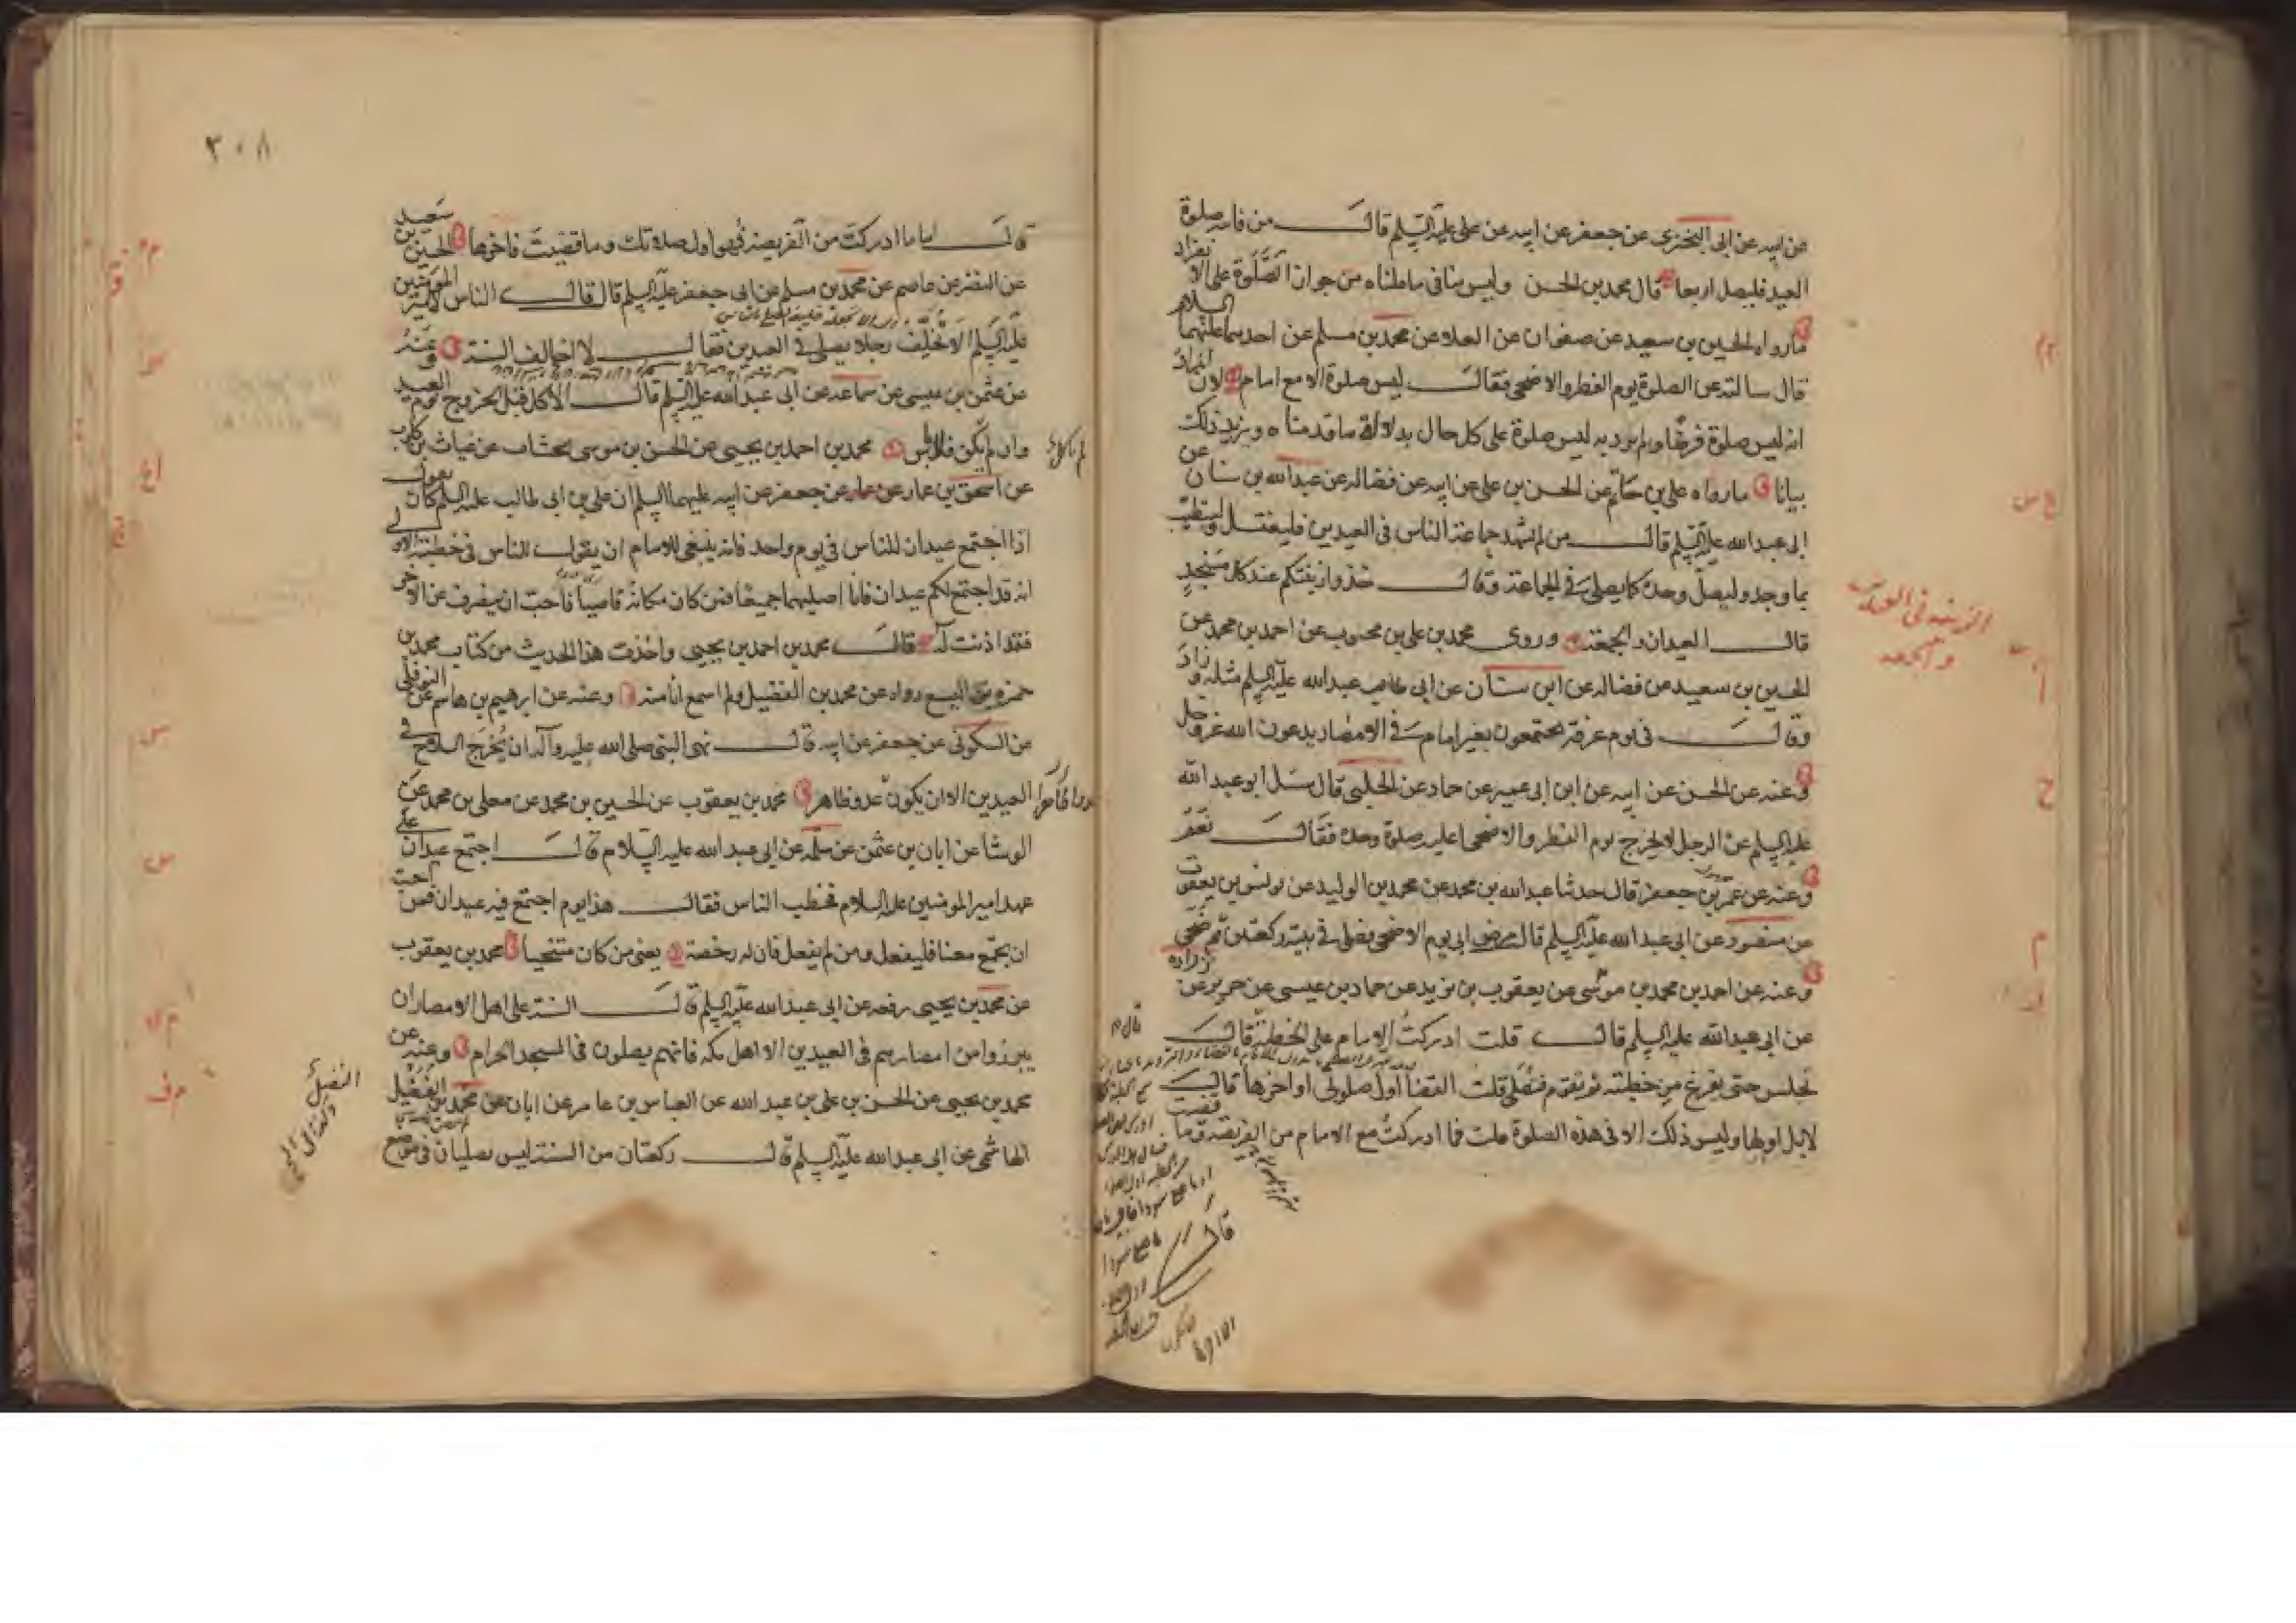 عن ابيه عن ابى البخترى عن جعفر عن ابيه عن على عليه السلم قال من فاته صلوة
العيد فليصل اربعا قال محمد بن الحسن وليس ينافى ما قلناه من جواز الصلوة على الانفراد
ما رواه الحسين بن سعيد عن صفوان عن العلاء عن محمد بن مسلم عن احدهما عليهما السلام
قال سالته عن الصلوة يوم الفطر والاضحى فقال ليس صلوة الا مع امام لان المراد
انه ليس صلوة فرضا ولم يرد به ليس صلوة على كل حال بدلالة ما قدمناه ويزيد ذلك
بيانا ما رواه على بن حاتم عن الحسن بن على عن ابيه عن فضاله عن عبد الله بن سنان عن
ابى عبد الله عليه السلم قال من لم يشهد جماعة الناس فى العيدين فليغتسل وليتطيب
بما وجد وليصل وحده كما يصلى فى الجماعة وقال خذوا زينتكم عند كل مسجد
قال العيدان والجمعة وروى محمد بن على بن محبوب عن احمد بن محمد عن
الحسين بن سعيد عن فضاله عن ابن سنان عن ابى عبد الله عليه السلم مثله وزاد
وقال فى يوم عرفة يجتمعون بغير امام فى الامصار يدعون الله عز وجل
وعنه عن الحسن عن ابيه عن ابن ابى عمير عن حماد عن الحلبى قال سئل ابو عبد الله
عليه السلم عن الرجل لا يخرج يوم الفطر والاضحى اعليه صلوة وحده فقال نعم
وعنه عن عمر بن جعفر قال حدثنا عبد الله بن محمد عن محمد بن الوليد عن يونس بن يعقوب
عن منصور عن ابى عبد الله عليه السلم قال مرض ابى يوم الاضحى فصلى فى بيته ركعتين ثم ضحى
وعنه عن احمد بن محمد بن موسى عن يعقوب بن يزيد عن حماد بن عيسى عن حريز عن زراره
عن ابى عبد الله عليه السلم قال قلت ادركت الامام على الخطبة قال
تجلس حتى يفرغ من خطبته ثم تقوم فتصلى قلت القضا اول صلوتى او اخرها قال
لا بل اولها وليس ذلك الا فى هذه الصلوة قلت فما ادركت مع الامام من الفريضة وما قضيت
الزينة فى العيد
والجمعه
قال
٣٠٨
قال اما ما ادركت من الفريضة فهو اول صلاتك وما قضيت فاخرها الحسين بن سعيد
عن النضر عن عاصم عن محمد بن مسلم عن ابى جعفر عليه السلم قال قال الناس لامير المومنين
عليه السلم الا تخلف رجلا يصلى فى العيدين فقال لا اخالف السنة وعنه
عن عثمن بن عيسى عن سماعه عن ابى عبد الله عليه السلم قال الاكل قبل الخروج يوم العيد
وان لم يكن فلا باس محمد بن احمد بن يحيى عن الحسن بن موسى الخشاب عن غياث بن كلوب
عن اسحق بن عمار عن جعفر عن ابيه عليهما السلم ان على بن ابى طالب عليه السلم كان يقول
اذا اجتمع عيدان للناس فى يوم واحد فانه ينبغى للامام ان يقول للناس فى خطبته الاولى
انه قد اجتمع لكم عيدان فانا اصليهما جميعا فمن كان مكانه قاصيا فاحب ان ينصرف عن الاخر
فقد اذنت له قال محمد بن احمد بن يحيى واخذت هذا الحديث من كتاب محمد بن
حمزه بن اليسع رواه عن محمد بن الفضيل ولم اسمع انا منه وعنه عن ابرهيم بن هاشم عن النوفلى
عن السكونى عن جعفر عن ابيه قال نهى النبى صلى الله عليه وآله ان يخرج السلاح فى
العيدين الا ان يكون عدو ظاهر محمد بن يعقوب عن الحسين بن محمد عن معلى بن محمد عن
الوشا عن ابان بن عثمن عن سلمه عن ابى عبد الله عليه السلام قال اجتمع عيدان على
عهد امير المومنين عليه السلام فخطب الناس فقال هذا يوم اجتمع فيه عيدان فمن احب
ان يجمع معنا فليفعل ومن لم يفعل فان له رخصة يعنى من كان متنحيا محمد بن يعقوب
عن محمد بن يحيى رفعه عن ابى عبد الله عليه السلم قال السنة على اهل الامصار ان
يبرزوا من امصارهم فى العيدين الا اهل مكه فانهم يصلون فى المسجد الحرام وعنه عن
محمد بن يحيى عن الحسن بن على بن عبد الله عن العباس بن عامر عن ابان عن محمد بن الفضيل
الهاشمى عن ابى عبد الله عليه السلم قال ركعتان من السنة ليس يصليان فى موضع
الفضل